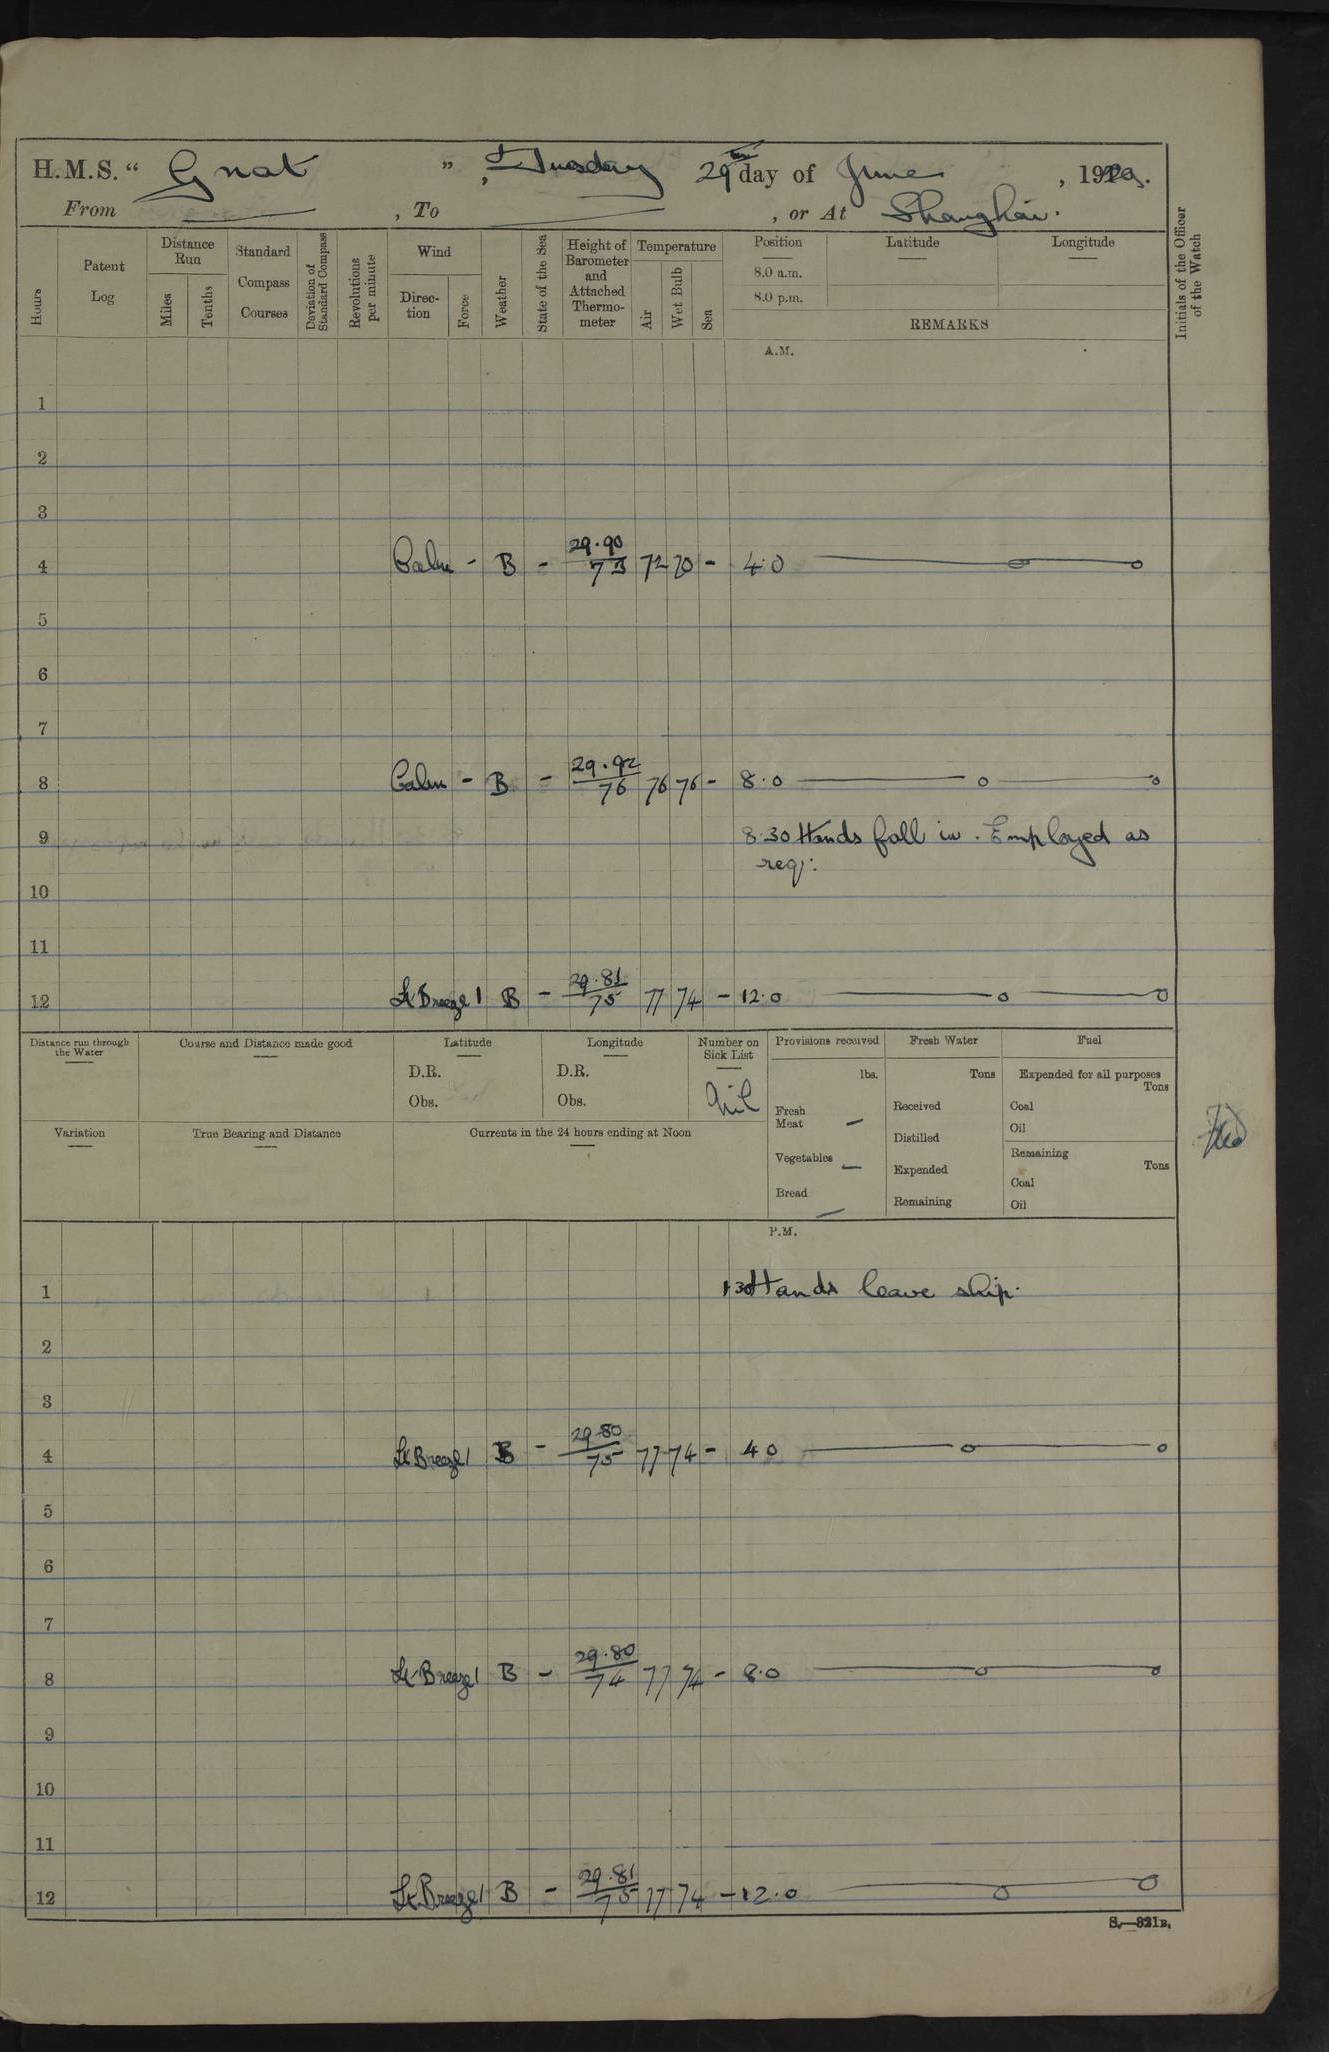 H.M.S. " Gnat ", Tuesday 29th day of June, 1920.
From , To , or At Shanghai.
Hours
Patent Log
Distance Run
Miles
Tenths
Standard Compass Courses
Deviation of Standard Compass
Revolutions per minute
Wind
Direc-tion
Force
Weather
State of the Sea
Height of Barometer and Attached Thermo-meter
Temperature
Air
Wet Bulb
Sea
Position
8.0 a.m.
8.0 p.m.
Latitude
Longitude
REMARKS
Initials of the Officer of the Watch
A.M.
1
2
3
4 Calm - B - 29.90/73 72 70 - 4.0
5
6
7
8 Calm - B - 29.92/76 76 76 - 8.0
9 8.30 Hands fall in. Employed as
req:
10
11
12 Lt Breeze 1 B - 29.81/75 77 74 - 12.0
Distance run through the Water
Course and Distance made good
Latitude
D.R.
Obs.
Longitude
D.R.
Obs.
Number on Sick List
Nil
Provisions received
lbs.
Fresh Meat —
Vegetables —
Bread —
Fresh Water
Tons
Received
Distilled
Expended
Remaining
Fuel
Expended for all purposes
Tons
Coal
Oil
Remaining
Tons
Coal
Oil
Variation
True Bearing and Distance
Currents in the 24 hours ending at Noon
P.M.
1 1 30 Hands leave ship.
2
3
4 Lt Breeze 1 B - 29.80/75 77 74 - 4 0
5
6
7
8 Lt Breeze 1 B - 29.80/74 77 74 - 8.0
9
10
11
12 Lt. Breeze 1 B - 29.81/75 77 74 - 12.0
S.—321B.